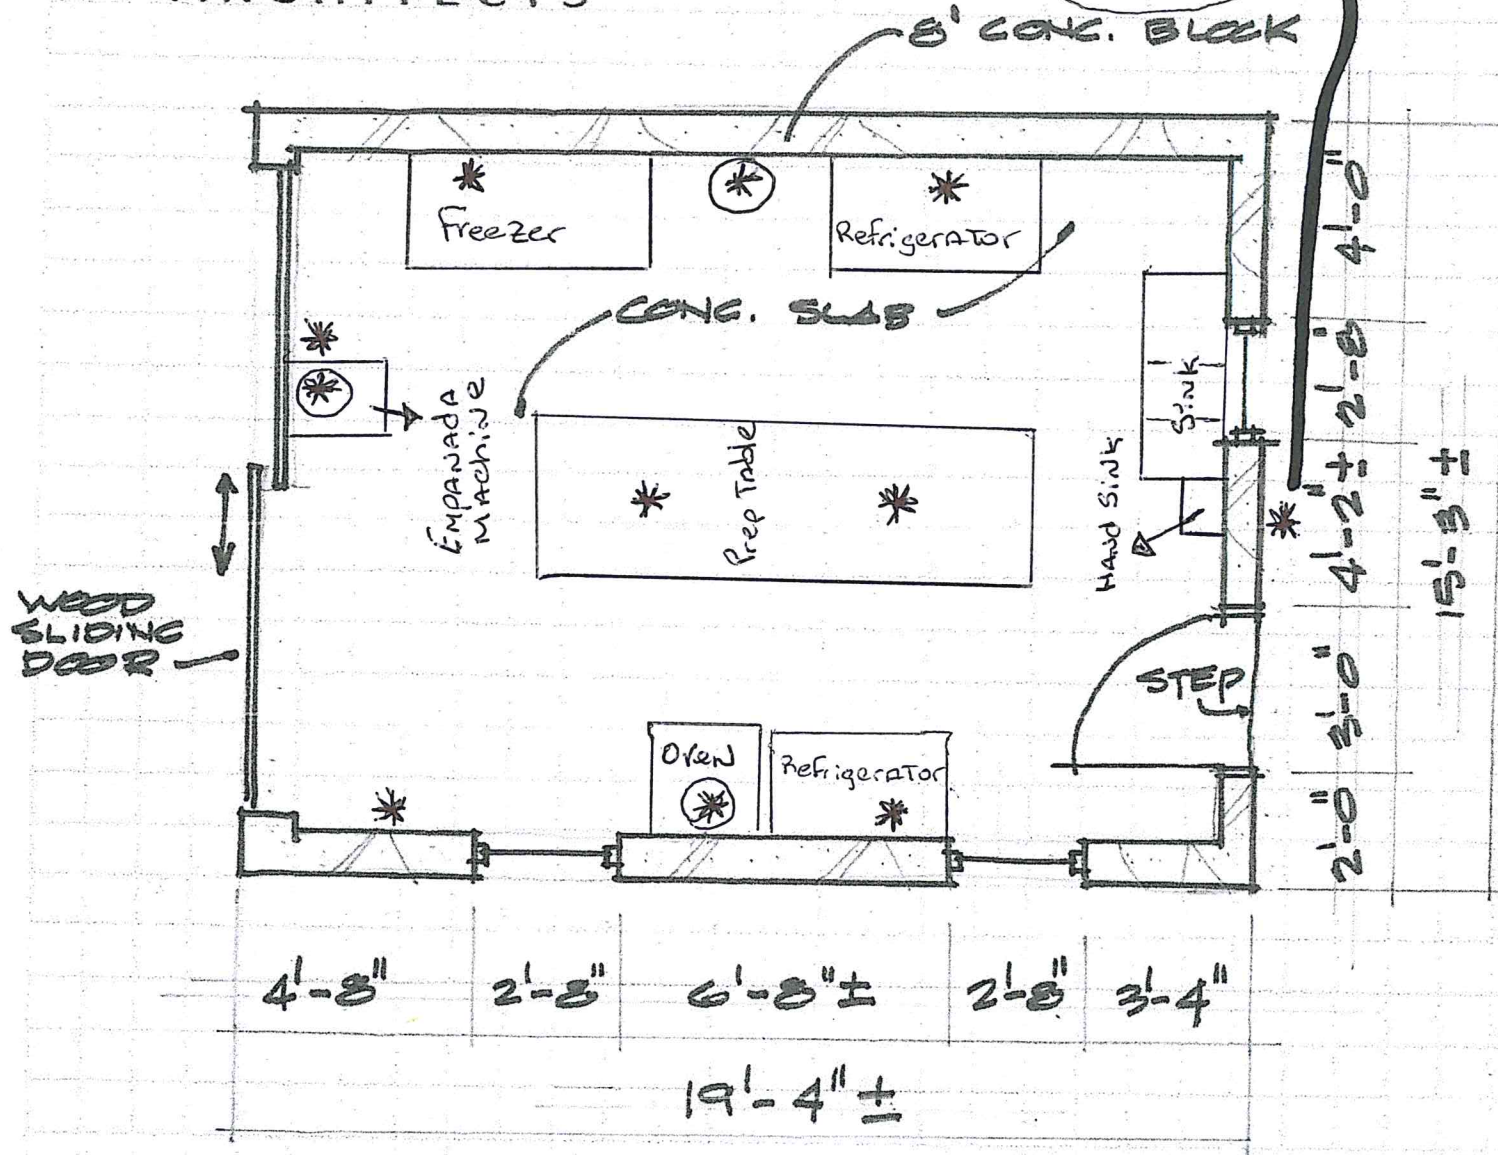 8' CONC. BLOCK
Freezer
Refrigerator
CONC. SLAB
EMPANADA
MACHINE
Prep Table
Sink
HAND SINK
WOOD
SLIDING
DOOR
STEP
Oven
Refrigerator
4'-0"
2'-8"
4'-2"±
3'-0"
2'-0"
15'-3"±
4'-8"
2'-8"
6'-8"±
2'-8"
3'-4"
19'-4"±